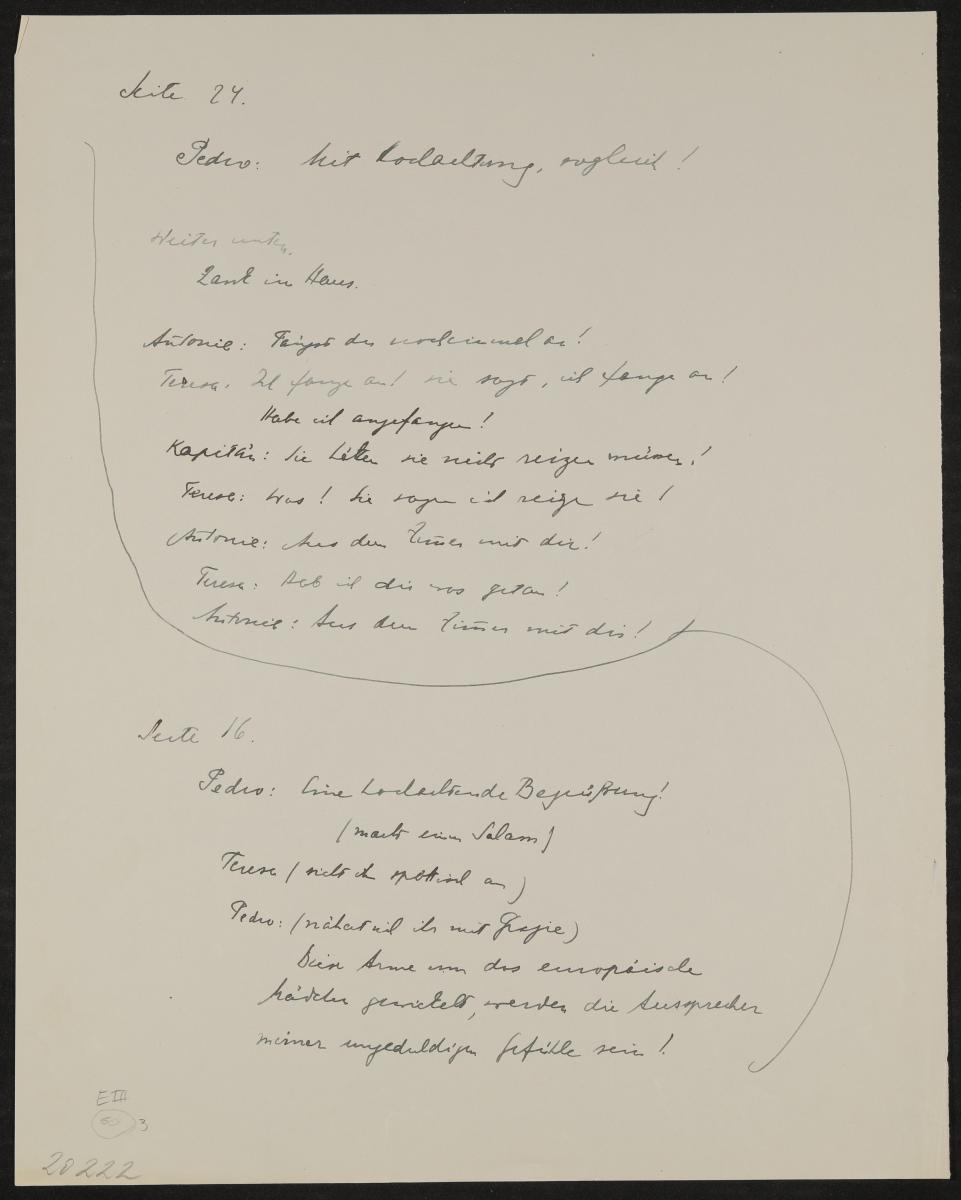 Seite 24.
Pedro: Mit Hochachtung, sogleich!
Weiter unten.
Zank im Haus.
Antonie: Fängst du nocheinmal an!
Teresa: Ich fange an! sie sagt, ich fange an!
Habe ich angefangen!
Kapitän: Sie hätten sie nicht reizen müssen!
Teresa: Was! Sie sagen ich reize sie!
Antonie: Aus dem Zimer mit dir!
Teresa: Hab ich dir was getan!
Antonie: Aus dem Zimer mit dir!
Seite 16.
Pedro: Eine hochachtende Begrüßung!
(macht einen Salam)
Teresa (sieht ihn spöttisch an)
Pedro: (nähert sich ihr mit Grazie)
Diese Arme um das europäische
Mädchen gewickelt, werden die Aussprecher
meiner ungeduldigen Gefühle sein!
E III
50 3
20222